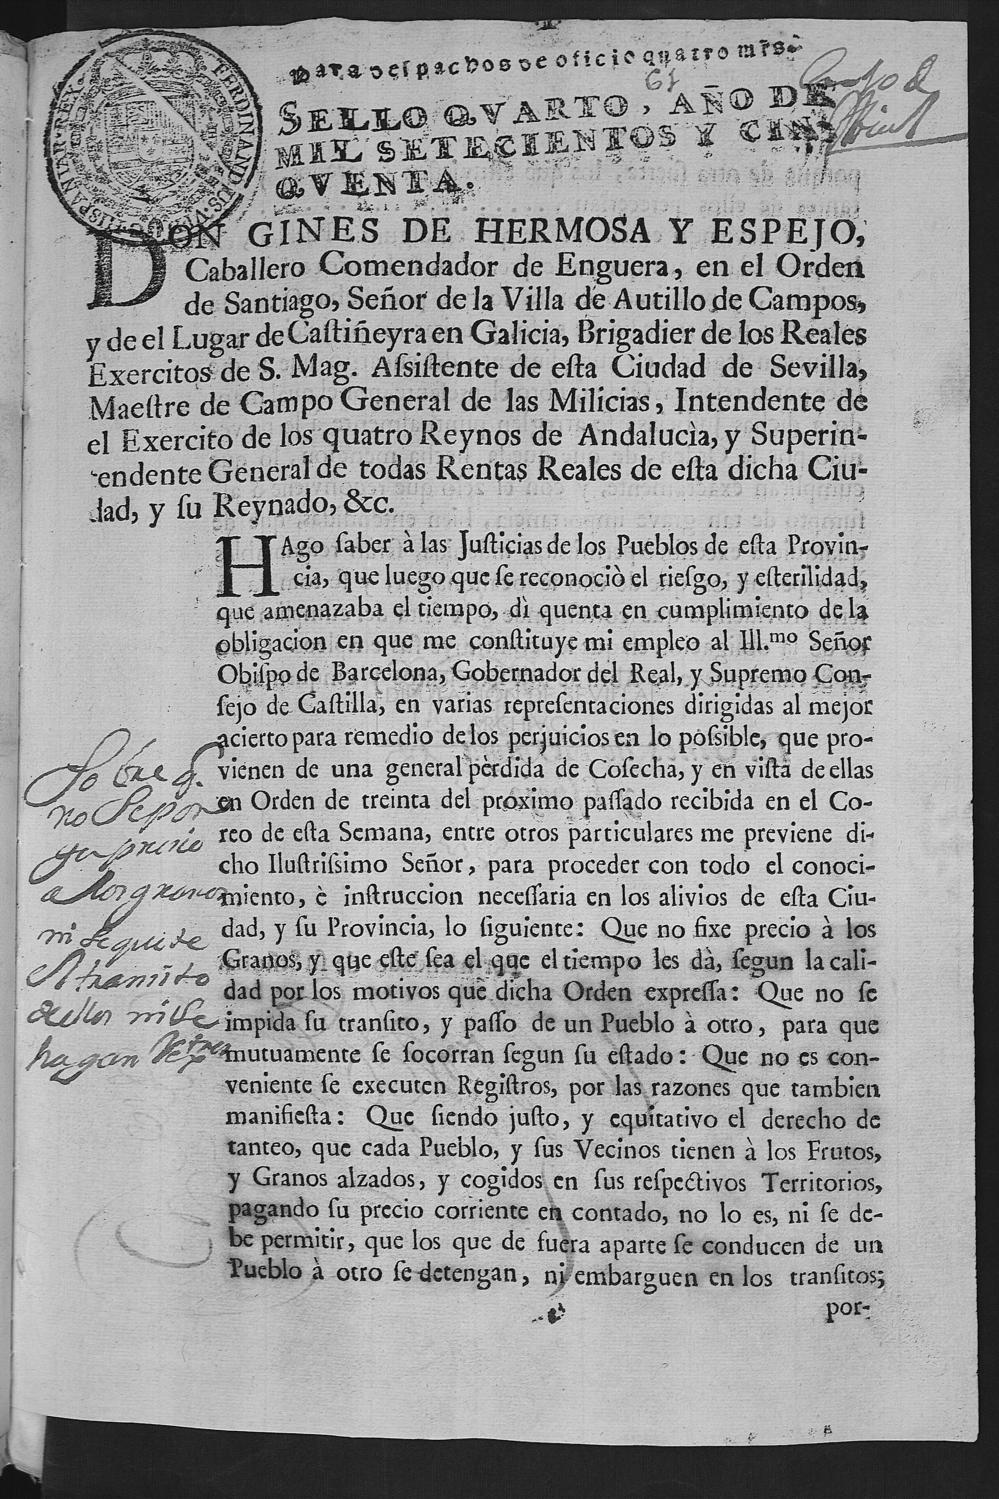 Para despachos de oficio quatro mrs.
61
SELLO QVARTO, AÑO DE
MIL SETECIENTOS Y CIN-
QVENTA.
FERDINANDUS VI D G HISPANIAR REX
DON GINES DE HERMOSA Y ESPEJO,
Caballero Comendador de Enguera, en el Orden
de Santiago, Señor de la Villa de Autillo de Campos,
y de el Lugar de Caſtiñeyra en Galicia, Brigadier de los Reales
Exercitos de S. Mag. Aſsiſtente de eſta Ciudad de Sevilla,
Maeſtre de Campo General de las Milicias, Intendente de
el Exercito de los quatro Reynos de Andalucìa, y Superin-
tendente General de todas Rentas Reales de eſta dicha Ciu-
dad, y ſu Reynado, &c.
HAgo ſaber à las Juſticias de los Pueblos de eſta Provin-
cia, que luego que ſe reconociò el rieſgo, y eſterilidad,
que amenazaba el tiempo, dì quenta en cumplimiento de la
obligacion en que me conſtituye mi empleo al Ill.mo Señor
Obiſpo de Barcelona, Gobernador del Real, y Supremo Con-
ſejo de Caſtilla, en varias repreſentaciones dirigidas al mejor
acierto para remedio de los perjuicios en lo poſsible, que pro-
vienen de una general pèrdida de Coſecha, y en viſta de ellas
en Orden de treinta del proximo paſſado recibida en el Co-
reo de eſta Semana, entre otros particulares me previene di-
cho Iluſtriſsimo Señor, para proceder con todo el conoci-
miento, è inſtruccion neceſſaria en los alivios de eſta Ciu-
dad, y ſu Provincia, lo ſiguiente: Que no fixe precio à los
Granos, y que eſte ſea el que el tiempo les dà, ſegun la cali-
dad por los motivos que dicha Orden expreſſa: Que no ſe
impida ſu tranſito, y paſſo de un Pueblo à otro, para que
mutuamente ſe ſocorran ſegun ſu eſtado: Que no es con-
veniente ſe executen Regiſtros, por las razones que tambien
manifieſta: Que ſiendo juſto, y equitativo el derecho de
tanteo, que cada Pueblo, y ſus Vecinos tienen à los Frutos,
y Granos alzados, y cogidos en ſus reſpectivos Territorios,
pagando ſu precio corriente en contado, no lo es, ni ſe de-
be permitir, que los que de fuera aparte ſe conducen de un
Pueblo à otro ſe detengan, ni embarguen en los tranſitos;
por-
Sobre q.
no Sepon
ga precio
a los granos
ni se quite
el transito
de ellos ni se
hagan